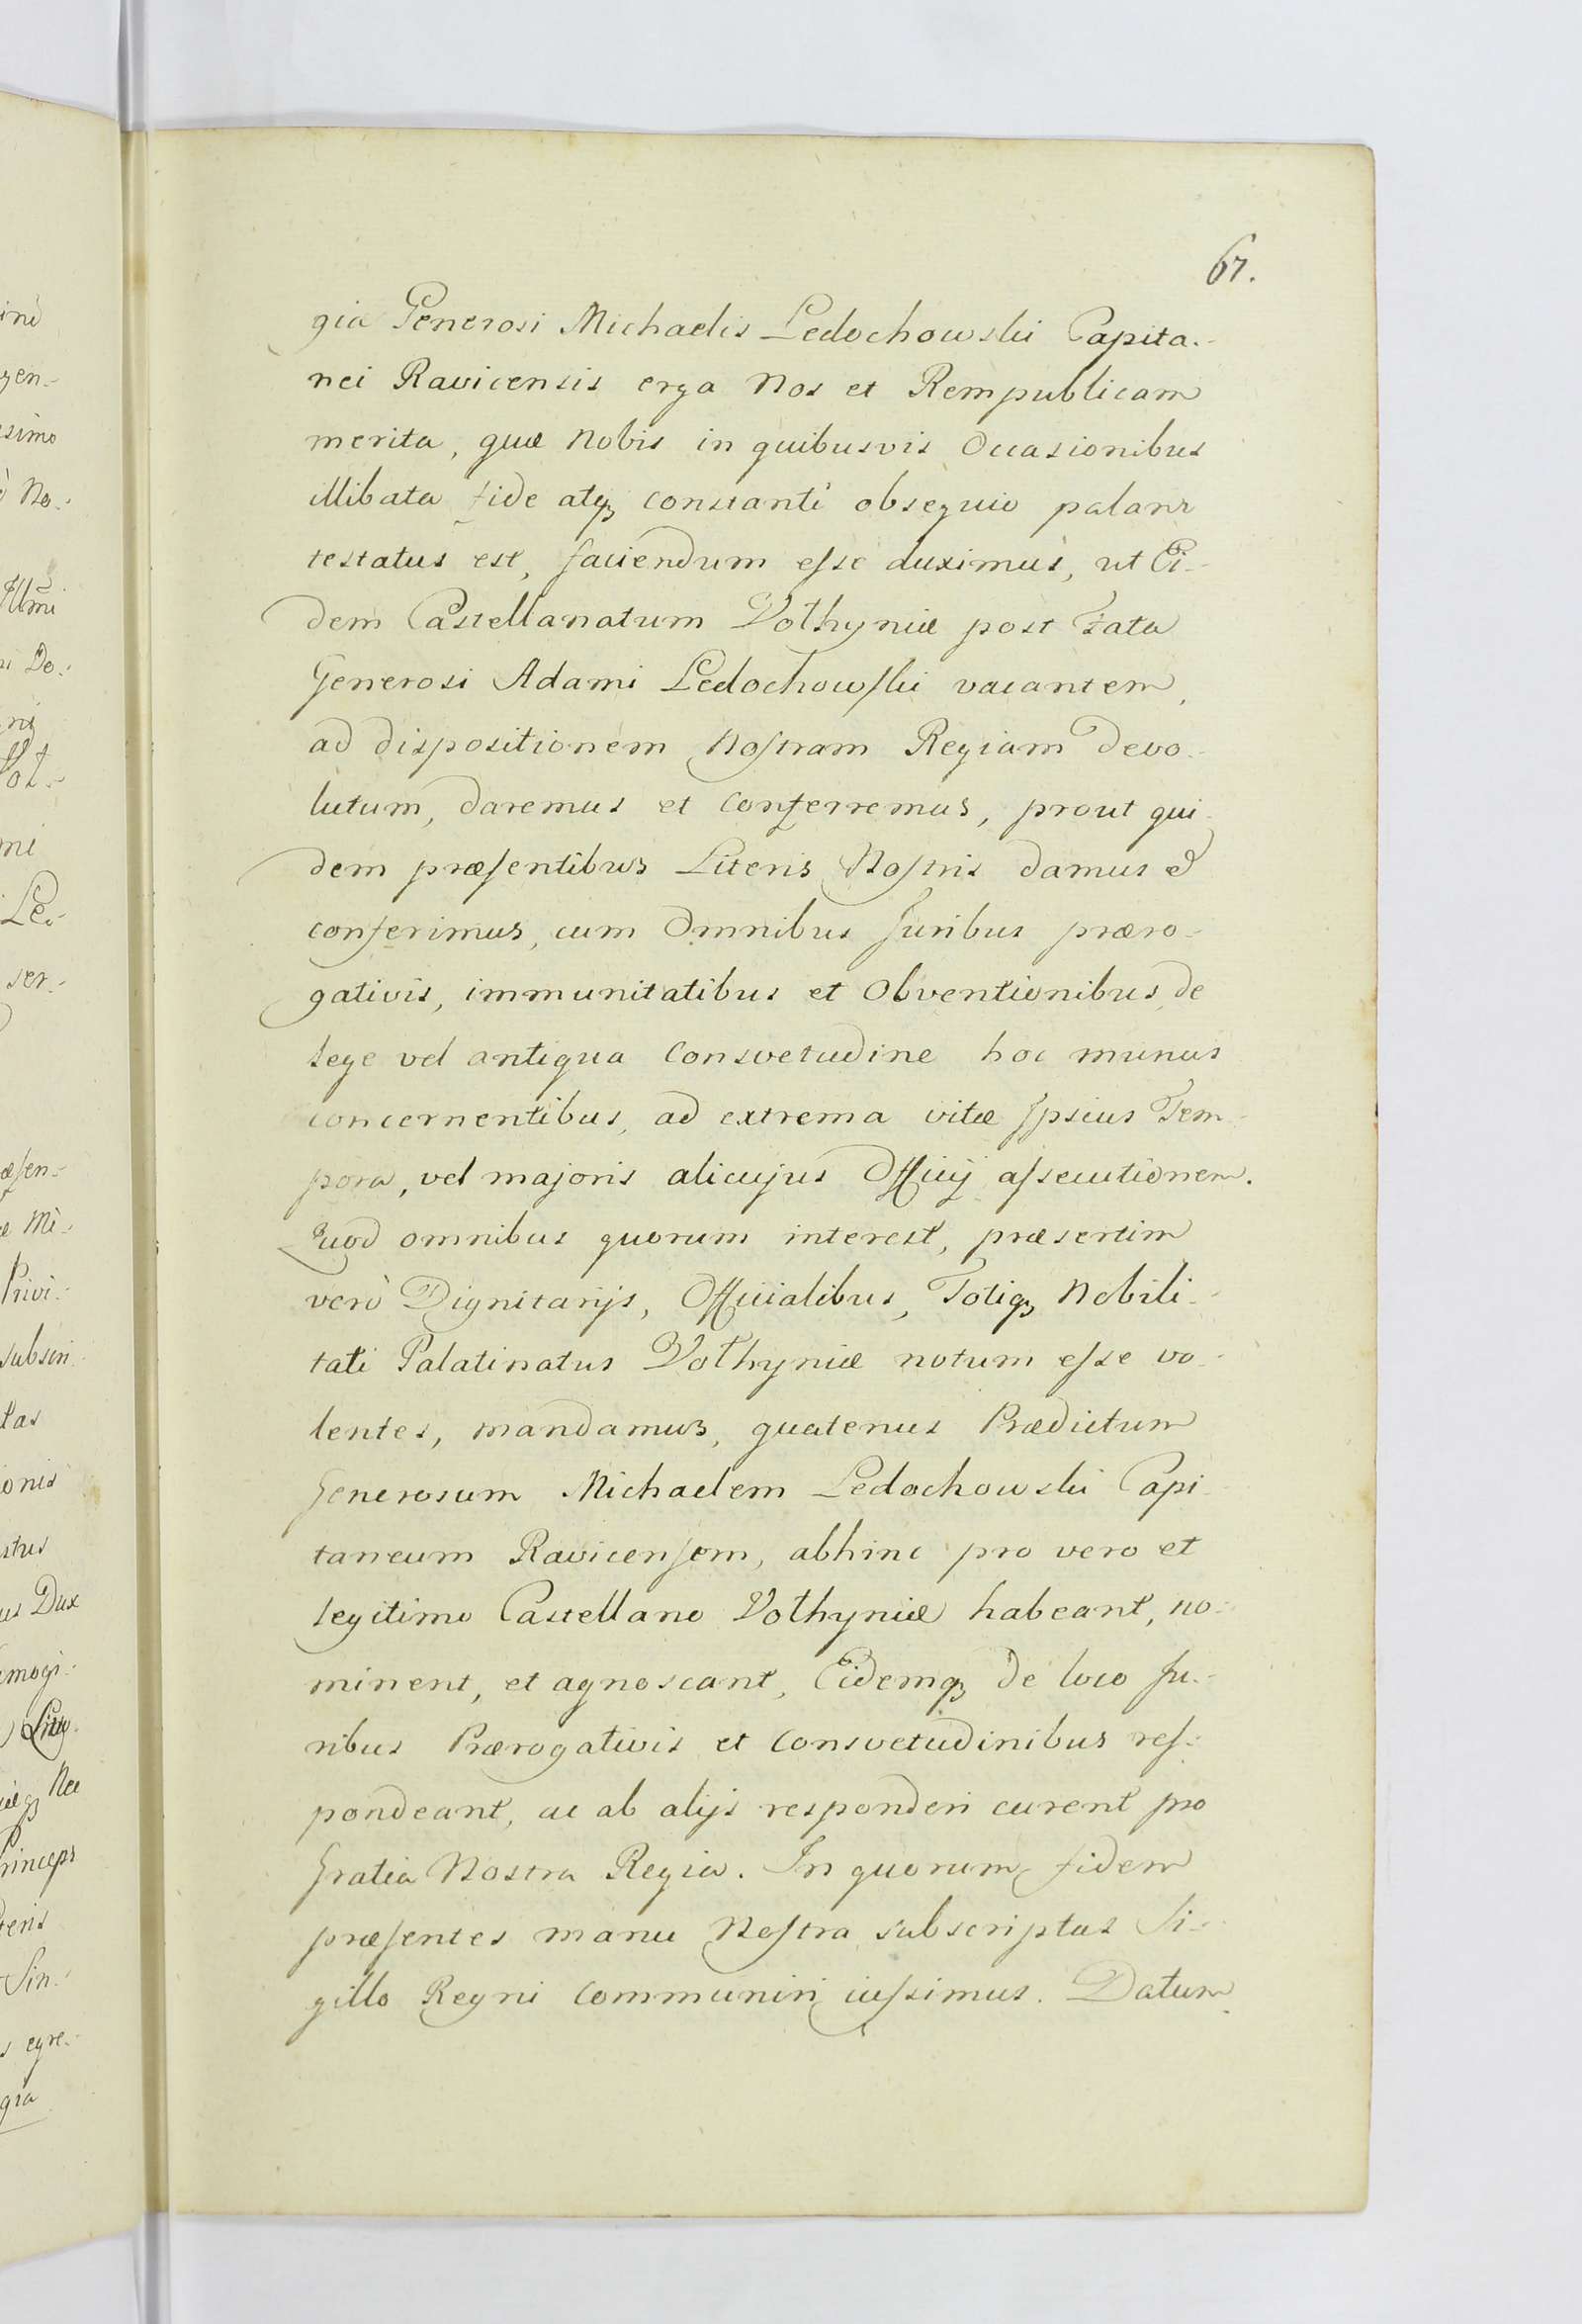 67.
gia Generosi Michaelis Ledochowski Capita-
nei Ravicensis erga Nos et Rempublicam
merita, quæ Nobis in quibusvis Occasionibus
illibata fide atq₃ constanti obsequio palam
testatus est, faciendum eſse duximus, ut Ei-
dem Castellanatum Volhyniæ post Fata
Generosi Adami Ledochowſki vacantem,
ad dispositionem Noſtram Regiam Devo-
lutum, daremus et conferremus, prout qui-
dem præſentibus Literis Noſtris damus &
conferimus, cum Omnibus Juribus præro-
gativis, immunitatibus et Obventionibus, de
Lege vel antiqua Consvetudine hoc munus
concernentibus, ad extrema vitæ Ipsius Tem-
pora, vel majoris alicujus Officij aſsecutionem.
Quod omnibus quorum interest, præsertim
verò Dignitarijs, Officialibus, Totiq₃ Nobili-
tati Palatinatus Volhyniæ notum eſse vo-
lentes, mandamus, quatenus Prædictum
Generosum Michaelem Ledochowski Capi-
taneum Ravicenſem, abhinc pro vero et
Legitimo Castellano Volhyniæ habeant, no-
minent, et agnoscant, Eidemq₃ de loco Ju-
ribus Prærogativis et Consvetudinibus reſ-
pondeant, ac ab alijs responderi curent pro
Gratia Nostra Regia. In quorum fidem
præſentes manu Noſtra subscriptas Si-
gillo Regni Communiri iuſsimus. Datum